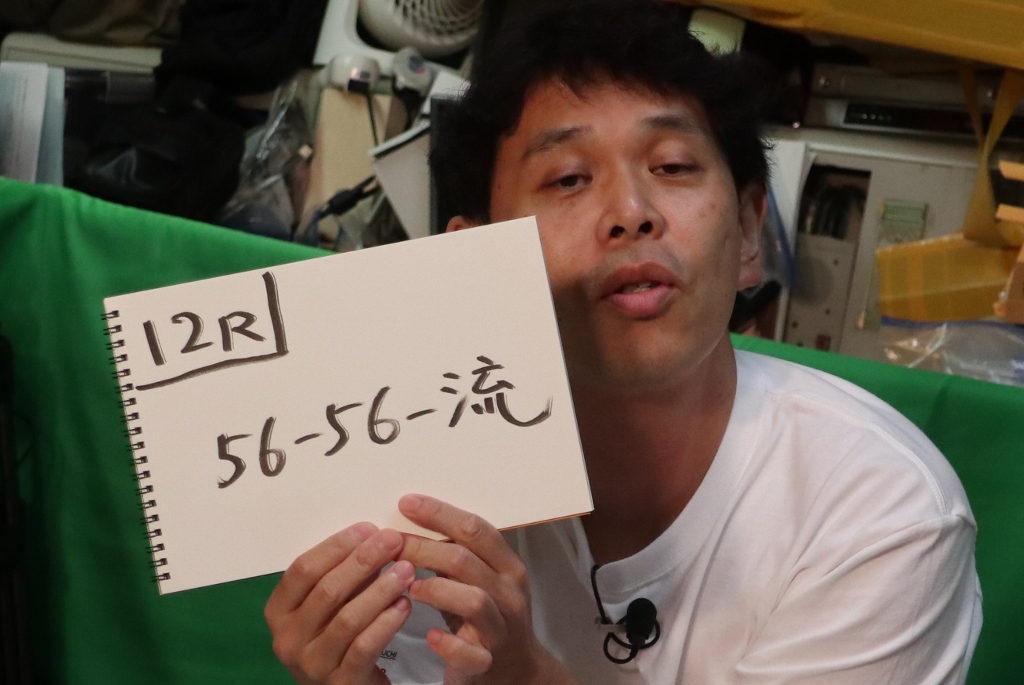 12R
56-56-流